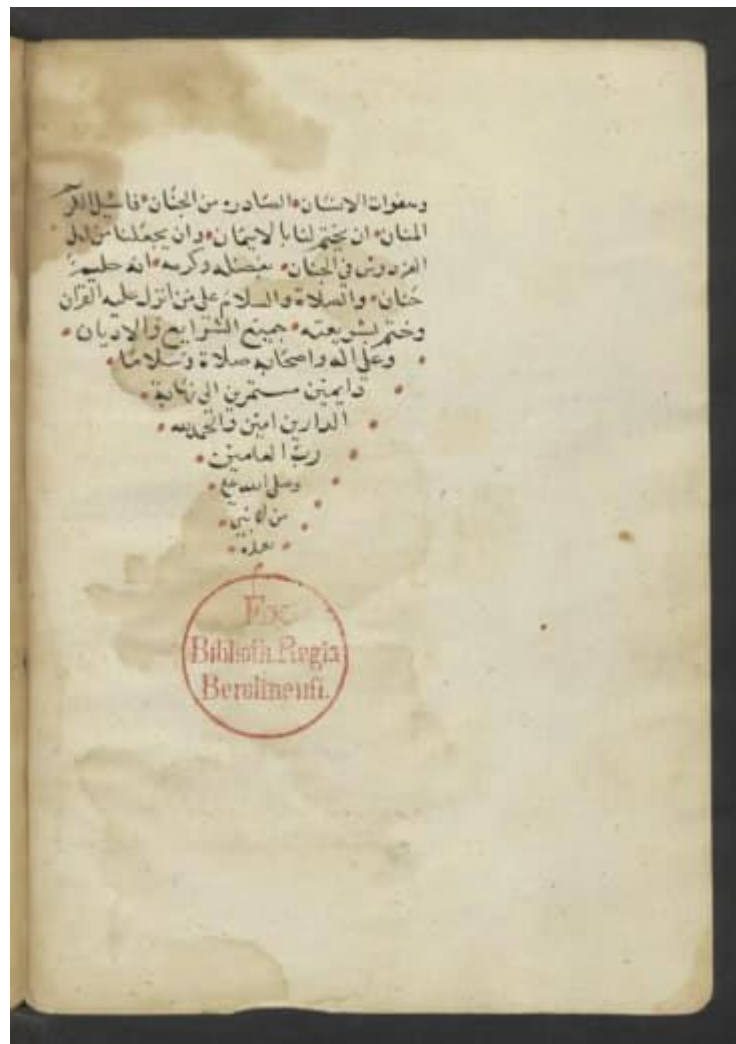 وهفوات الانسان الصادره من الجنان فاسئل الله
المنان ان يختم لنا بالايمان وان يجعلنا من اهل
الفردوس في الجنان بفضله وكرمه انه حليم
حنان والصلاة والسلام على من انزل عليه القران
وختم بشريعته جميع الشرايع والاديان
وعلى اله واصحابه صلاة وسلاما
دايمين مستمرين الى نهاية
الدارين امين والحمد لله
ربّ العامين
وصلى الله
من لا نبي
بعده
Ex
Biblioth. Regia
Berolinensi.